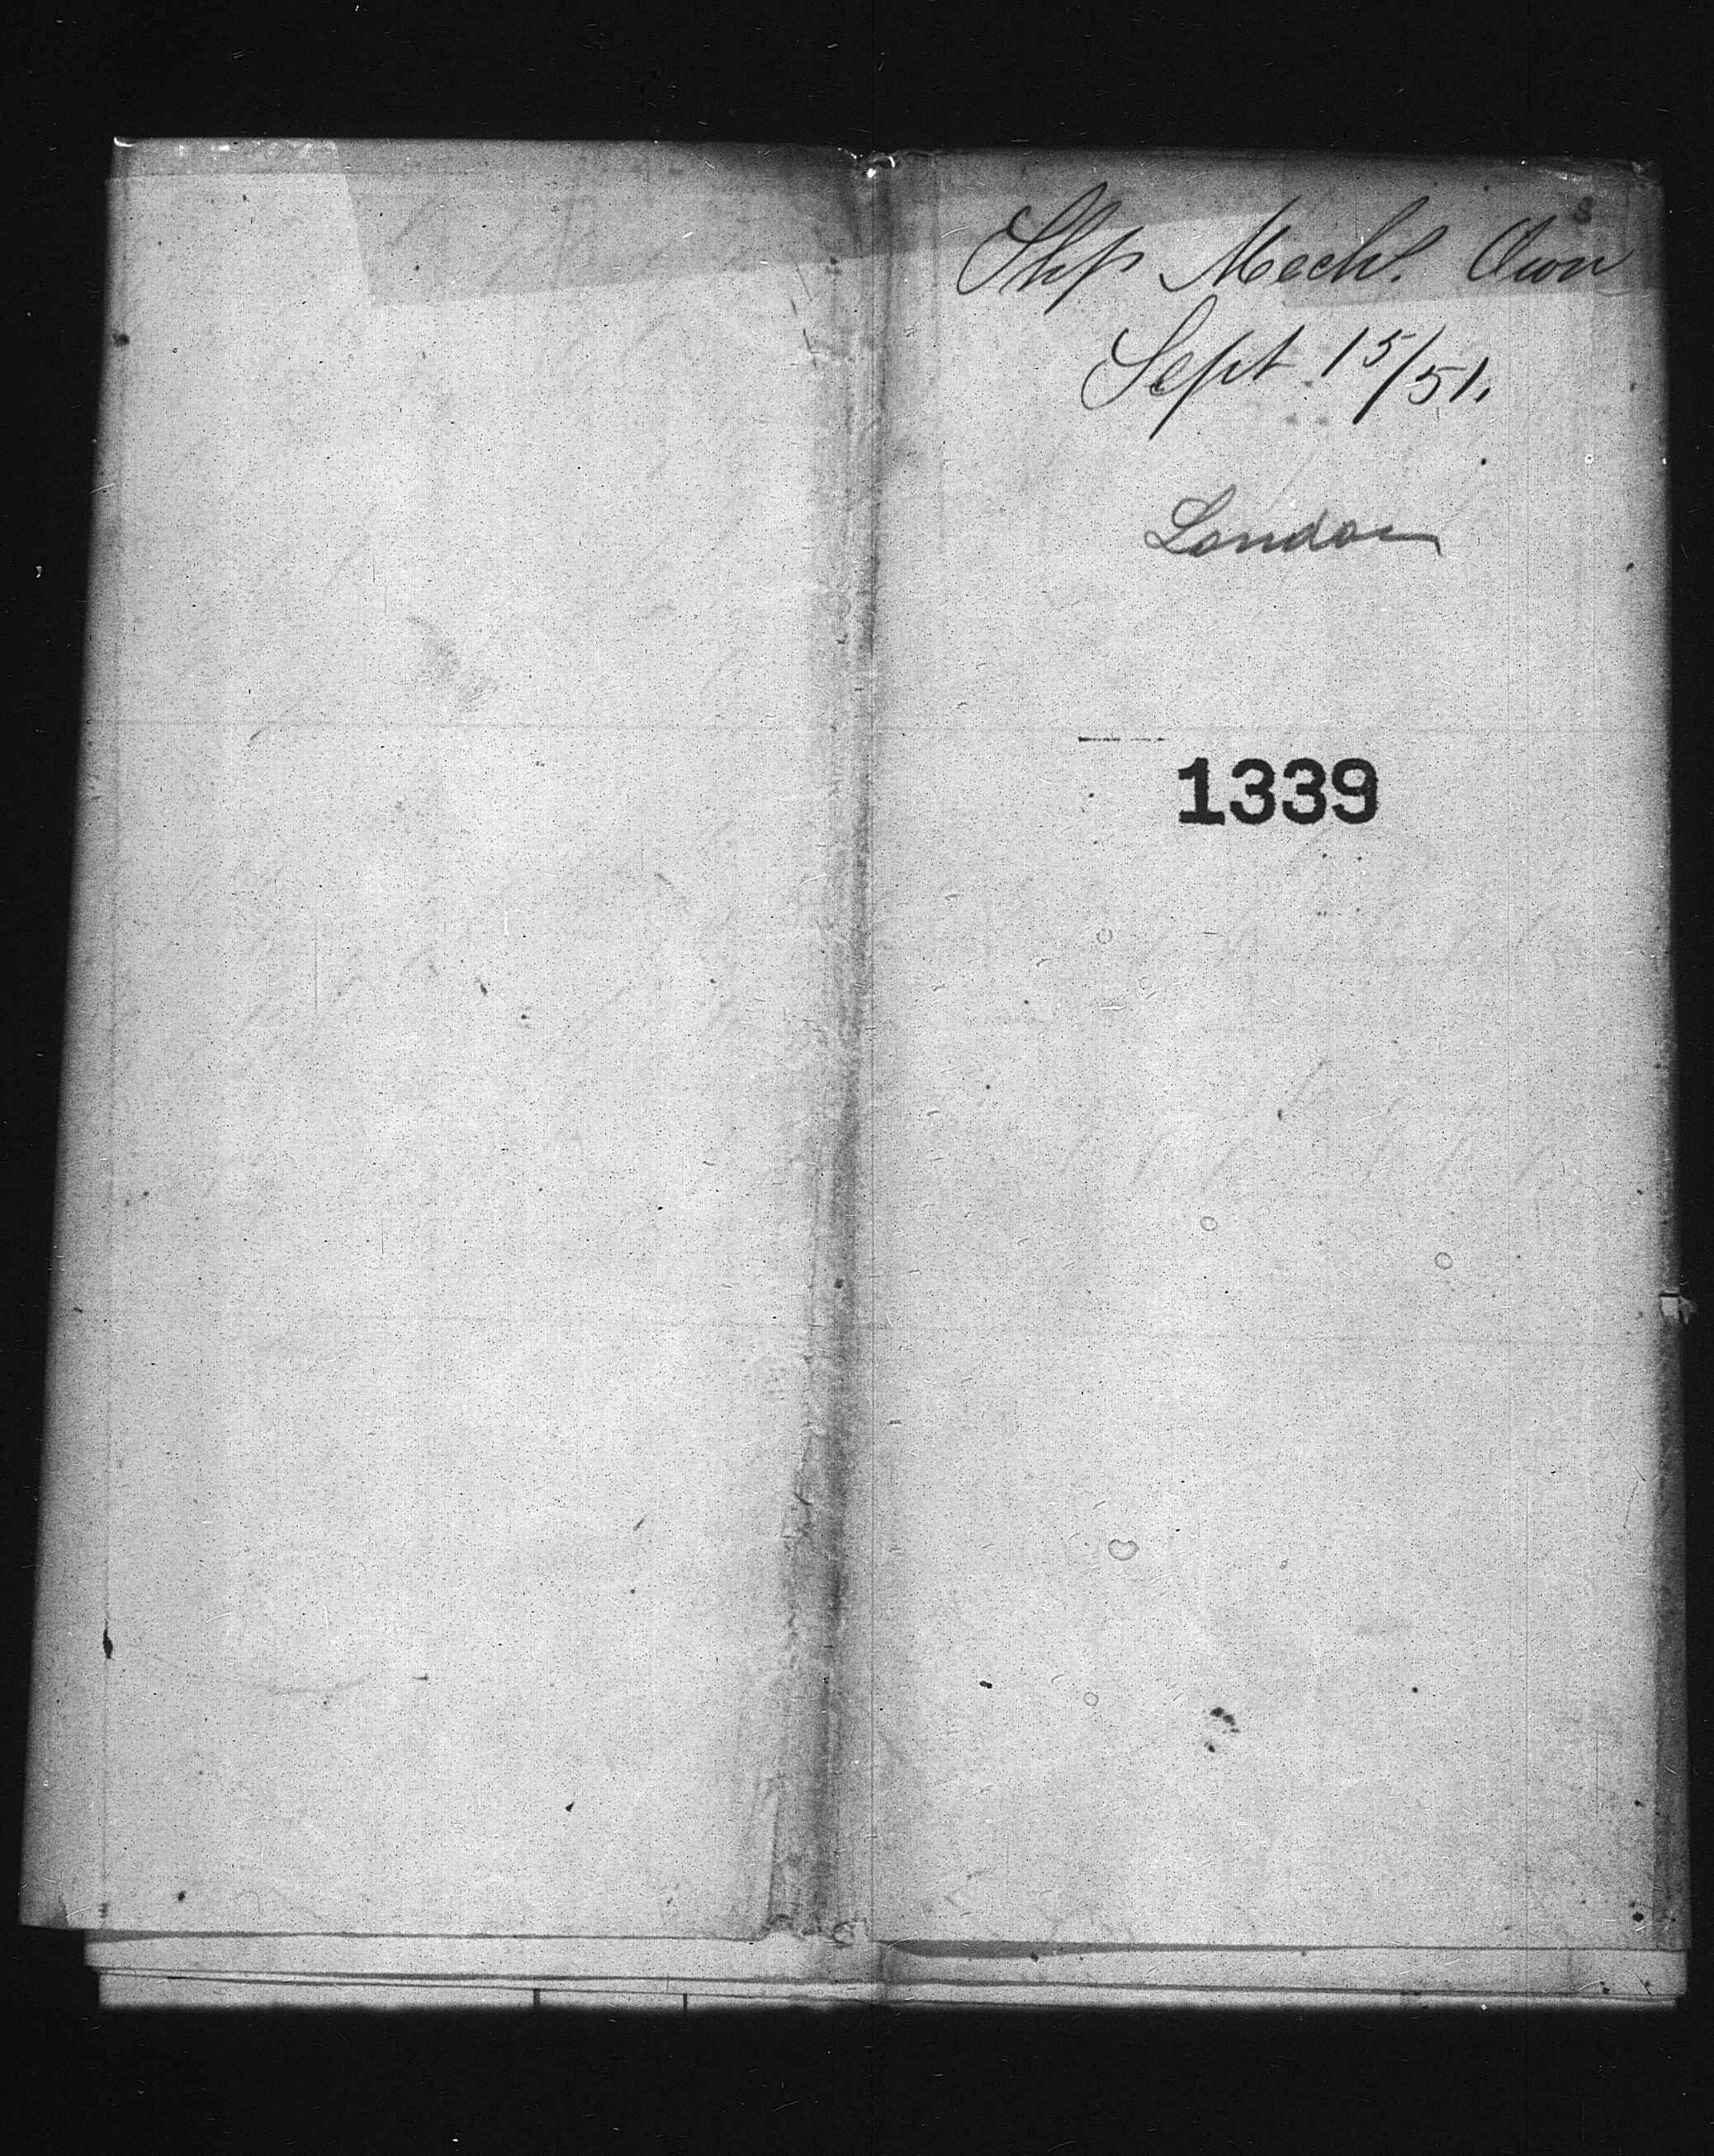 Shp Mech's Own
Sept 15/51.
London
1339